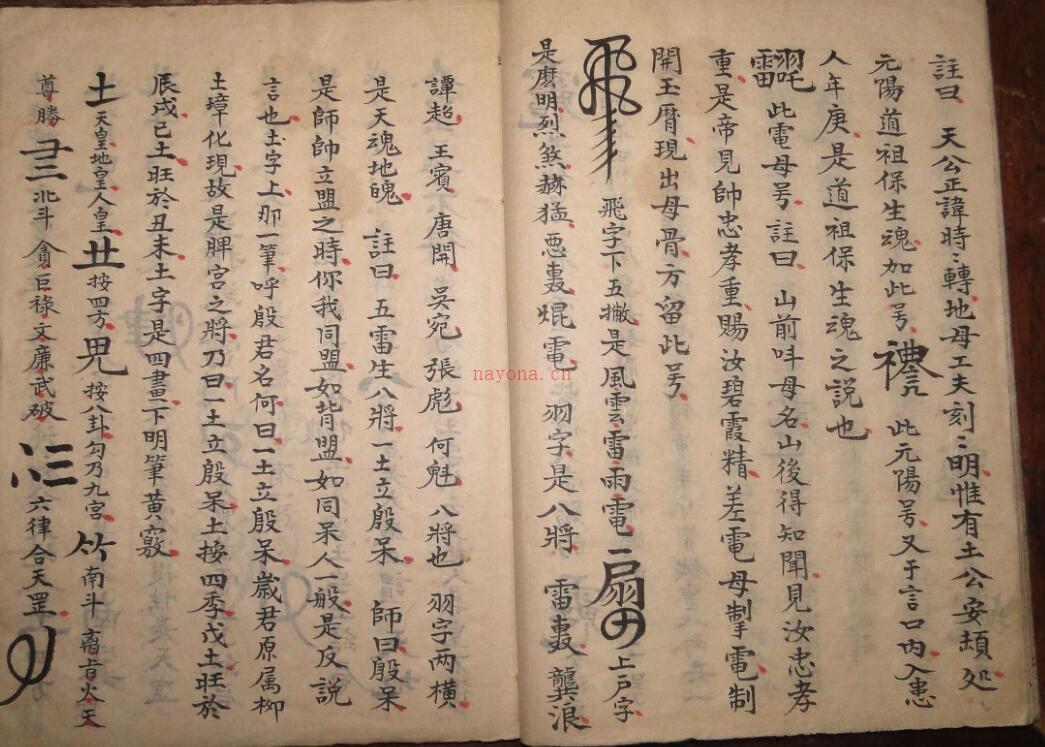 註曰 天公正諱時〻轉地母工夫刻〻明惟有土公安頡処
元陽道祖保生魂如此号 此元陽号又于言口内入患
人年庚是道祖保生魂之説也
此電母号 註曰 山前呌母名山後得知聞見汝忠孝
重是帝見帥忠孝重賜汝碧霞精差電母掣電制
開玉曆現出母骨方留此号
飛字下五撇是風雲雷雨電 扇 上戶字
是麽明烈煞赫猛惡轟焜電 羽字是八將 雷轟 龔浪
譚超 王賓 唐開 吳宛 張彪 何魁 八將也 羽字两橫
是天魂地魄 註曰 五雷生八將一土立殷呆 師曰殷呆
是師帥立盟之時你我同盟如背盟如同呆人一般是反説
言也土字上那一筆呼殷君名何曰一土立殷呆歲君原属柳
土璋化現故是脾宮之將乃曰一土立殷呆土按四季戊土旺於
辰戌己土旺於丑未土字是四畫一下明筆黃
土 天皇地皇人皇 按四方 按八卦勾乃九宮 南斗 离旨火天
尊勝 北斗 貪巨祿文廉武破 六律合天罡
nayona.cn